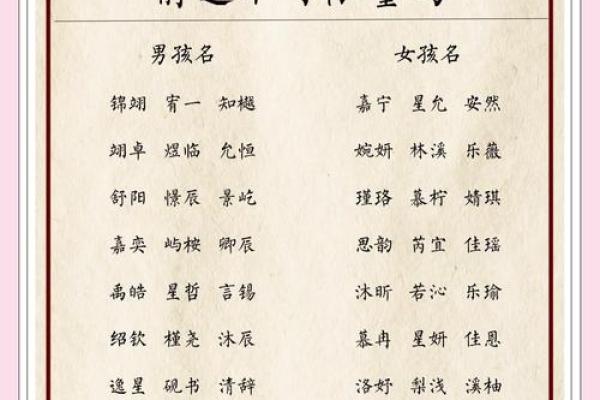 男孩名 女孩名
锦翊 宥一 知樾 嘉宁 星允 安然
翊卓 煜临 允恒 婉妍 林溪 乐薇
舒阳 憬辰 景屹 瑾珞 慕柠 婧琪
嘉奕 屿桉 卿辰 思韵 芮宜 佳瑶
禹皓 星哲 言锡 沐昕 若沁 乐瑜
绍钦 槿尧 沐辰 慕冉 星妍 佳恩
逸星 砚书 清辞 洛妤 梨浅 溪柚